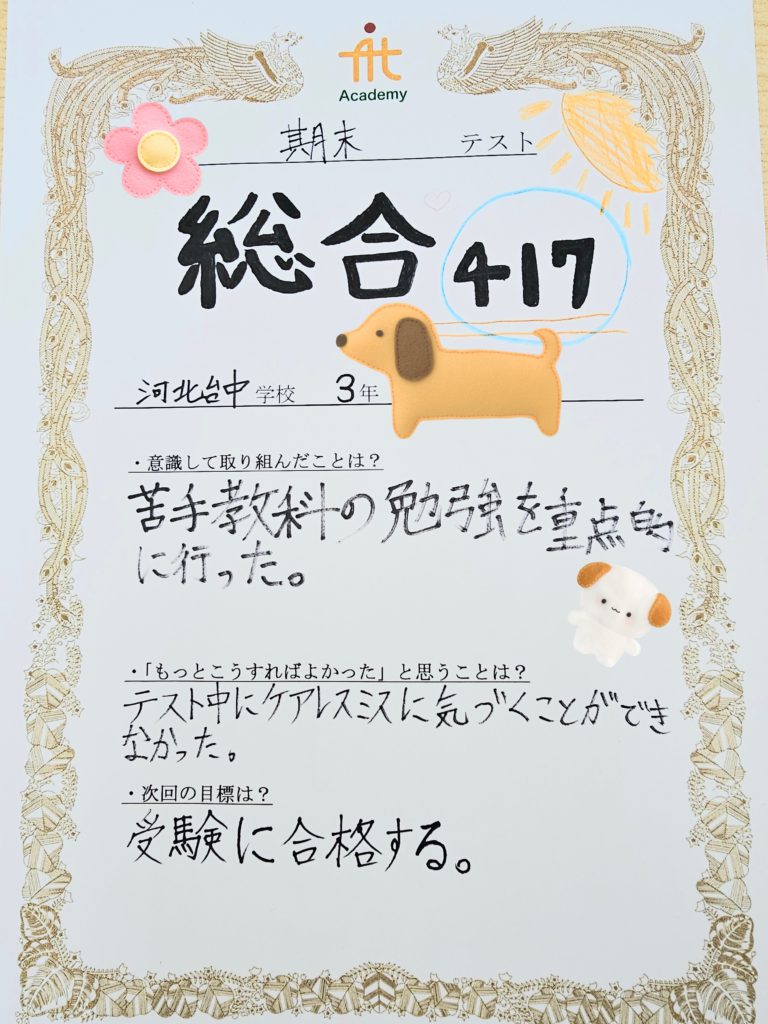 fit
Academy
期末 テスト
総合 417
河北台中 学校 3年
・意識して取り組んだことは？
苦手教科の勉強を重点的
に行った。
・「もっとこうすればよかった」と思うことは？
テスト中にケアレスミスに気づくことができ
なかった。
・次回の目標は？
受験に合格する。